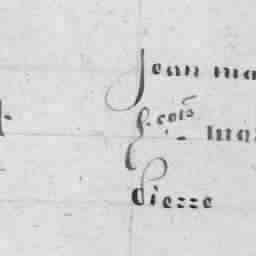 Jean ma
f.çois ma
Pierre